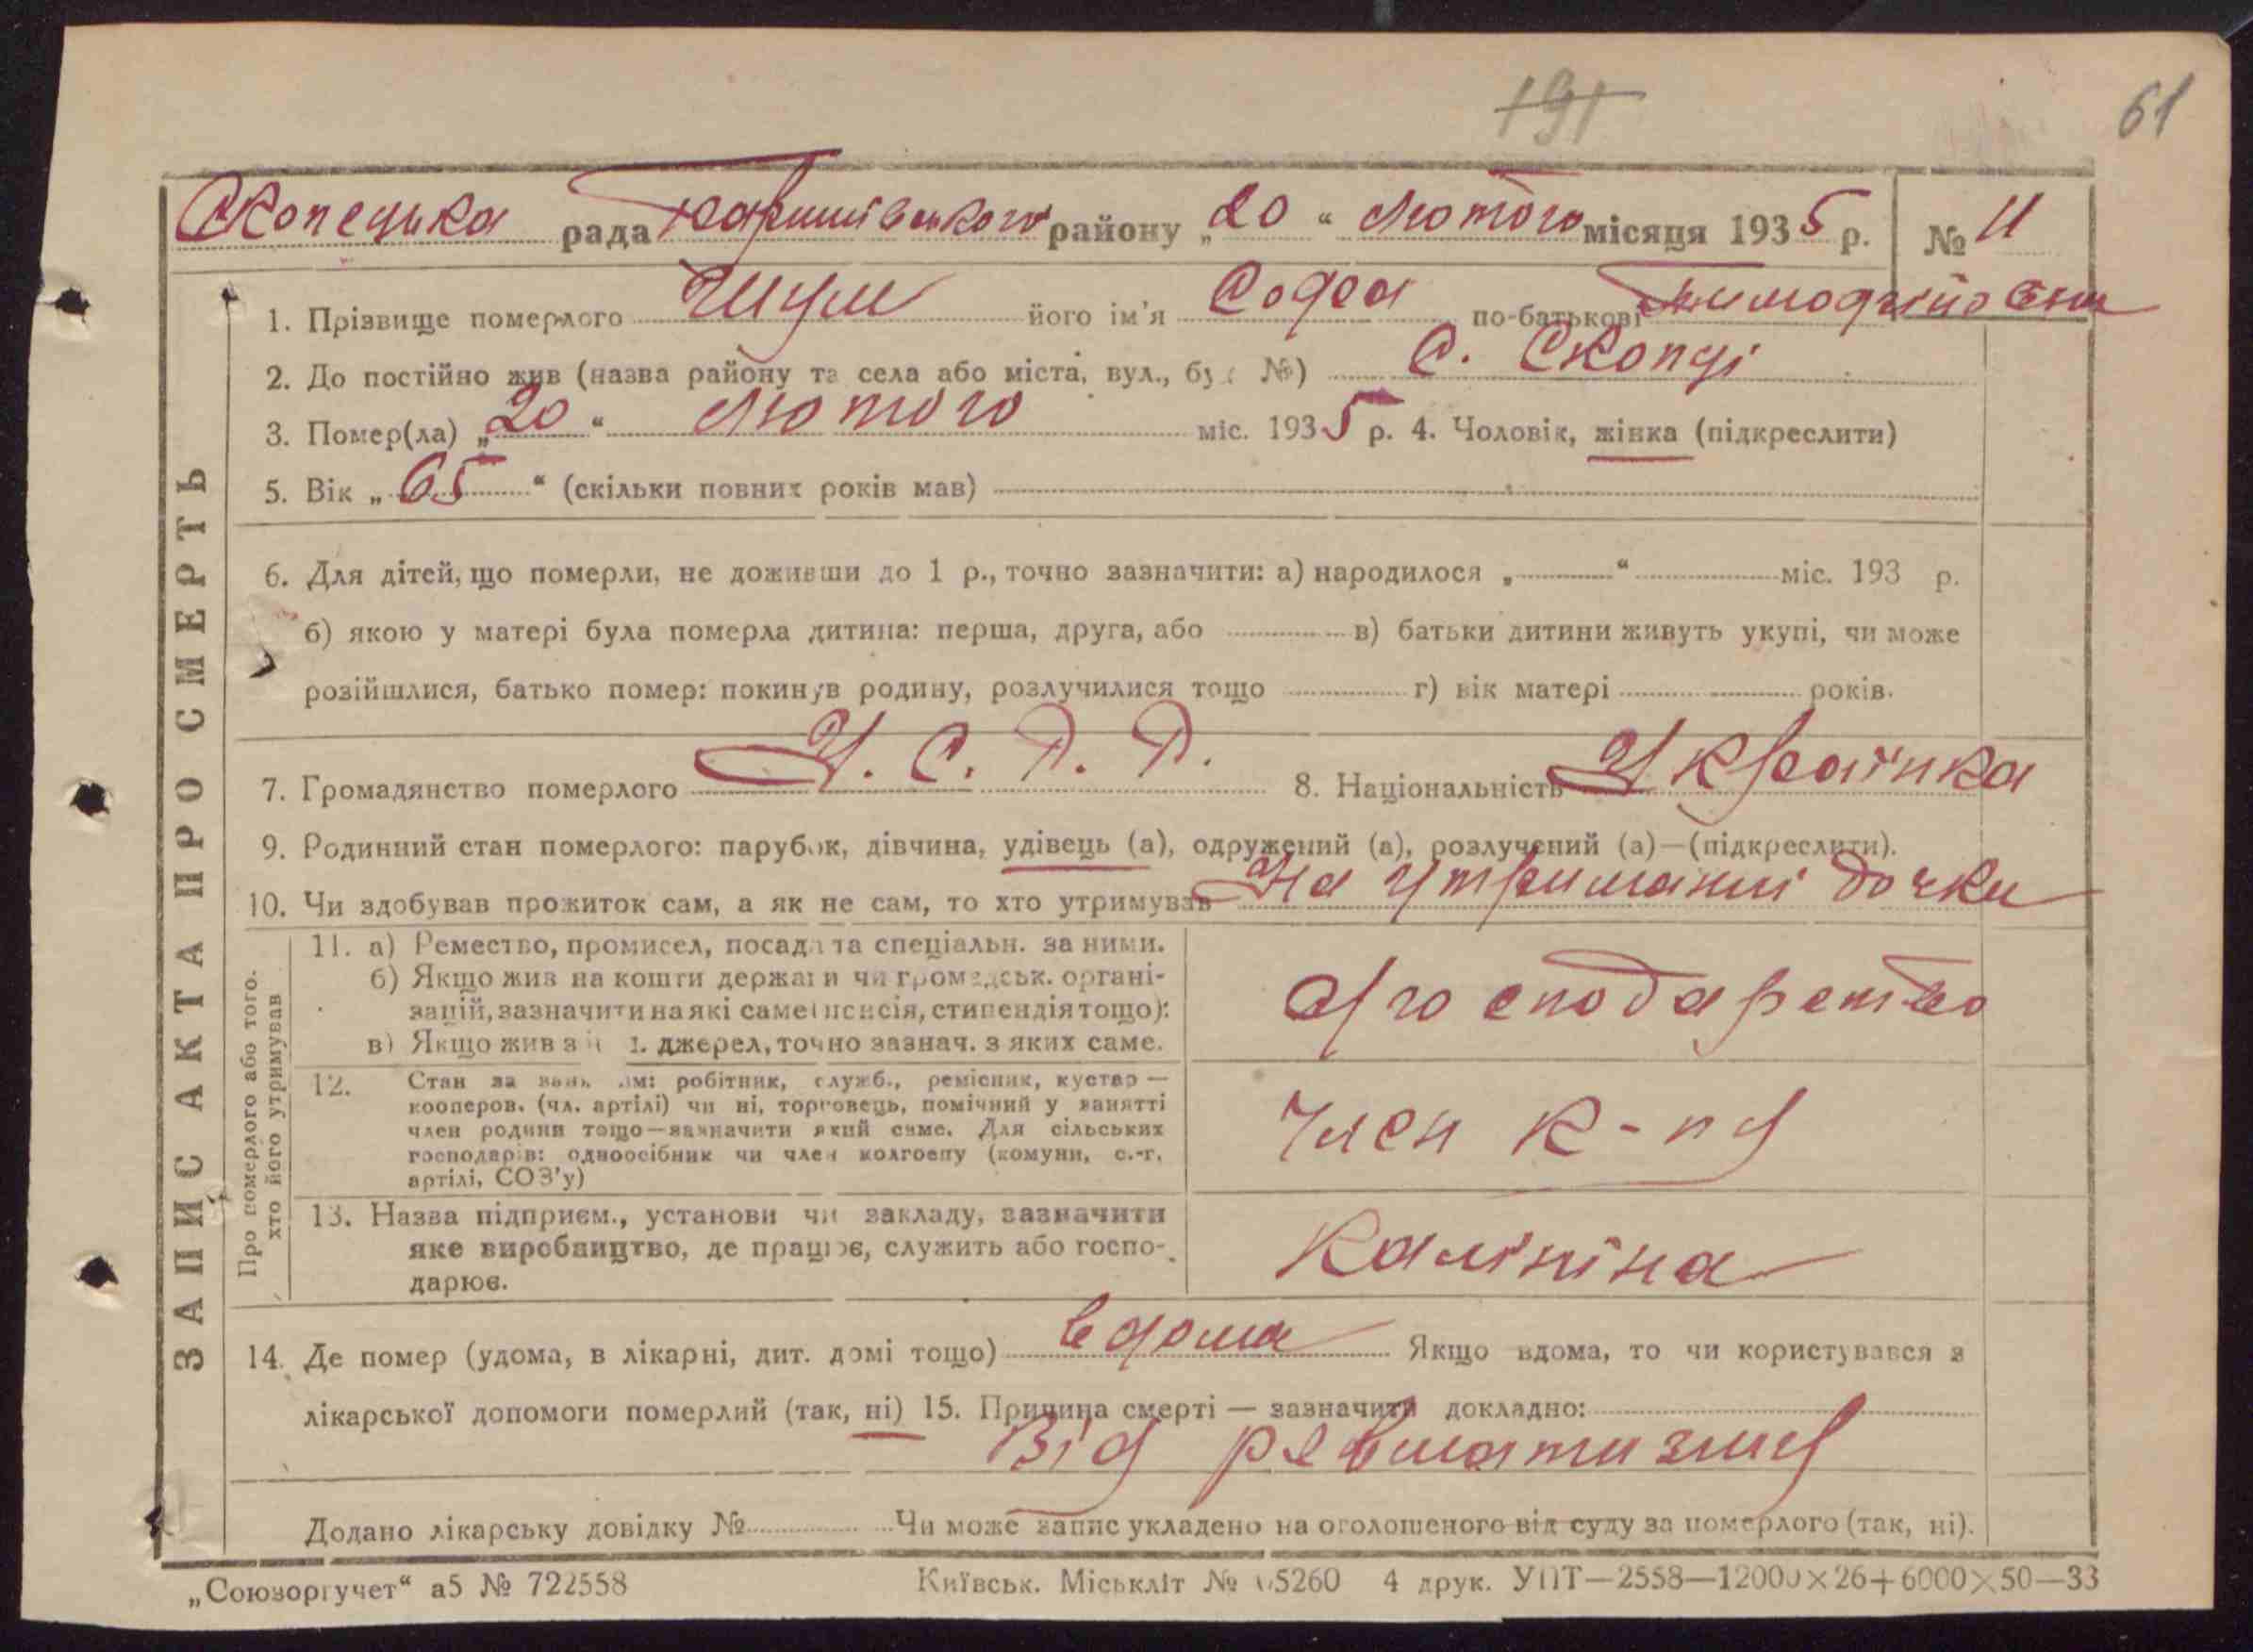 191
61
Скопецька рада Баришівського району „20“ Лютого місяця 1935 р. № 11
ЗАПИС АКТА ПРО СМЕРТЬ
1. Прізвище померлого Шум його ім'я Софія по-батькові Тимофіївна
2. До постійно жив (назва району та села або міста, вул., буд. №) С. Скопці
3. Помер(ла) „20“ Лютого міс. 1935 р. 4. Чоловік, жінка (підкреслити)
5. Вік „65“ (скільки повних років мав)
6. Для дітей, що померли, не доживши до 1 р., точно зазначити: а) народилося „ “ міс. 193 р.
б) якою у матері була померла дитина: перша, друга, або в) батьки дитини живуть укупі, чи може
розійшлися, батько помер: покинув родину, розлучилися тощо г) вік матері років.
7. Громадянство померлого У. С. Р. Р. 8. Національність Українка
9. Родинний стан померлого: парубок, дівчина, удівець (а), одружений (а), розлучений (а)—(підкреслити).
10. Чи здобував прожиток сам, а як не сам, то хто утримував На утриманні дочки
Про померлого або того.
хто його утримував
11. а) Ремество, промисел, посада та спеціальн. за ними.
б) Якщо жив на кошти держави чи громадськ. органі-
зацій, зазначити на які саме (пенсія, стипендія тощо):
в) Якщо жив з і. джерел, точно зазнач. з яких саме.
Сі господарство
12. Стан за занят.: робітник, служб., ремісник, кустар —
кооперов. (чл. артілі) чи ні, торговець, помічний у занятті
член родини тощо—зазначити який саме. Для сільських
господарів: одноосібник чи член колгоспу (комуни, с.-г.
артілі, СОЗ'у)
Член к-пу
13. Назва підприєм., установи чи закладу, зазначити
яке виробництво, де працює, служить або госпо-
дарює.
Калініна
14. Де помер (удома, в лікарні, дит. домі тощо) в дома Якщо вдома, то чи користувався з
лікарської допомоги померлий (так, ні) 15. Причина смерті — зазначити докладно:
Від ревматизму
Додано лікарську довідку № Чи може запис укладено на оголошеного від суду за померлого (так, ні).
„Союзоргучет“ а5 № 722558 Київськ. Міськліт № 5260 4 друк. УПТ—2558—12000×26+6000×50—33